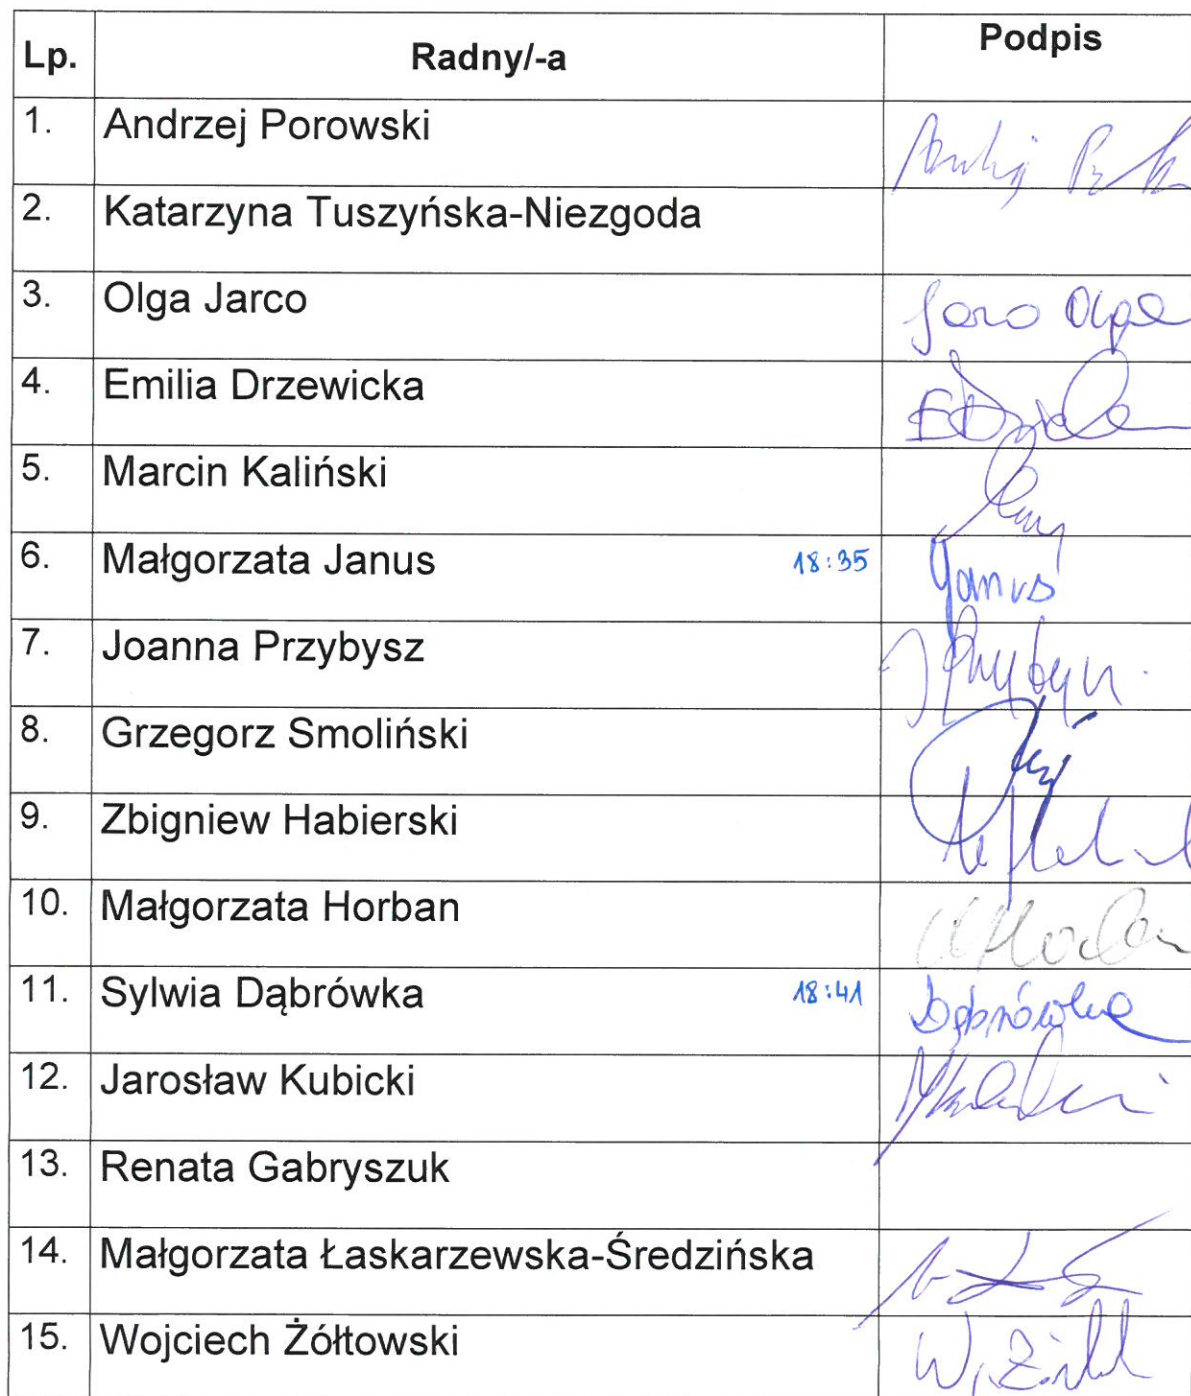 Lp. Radny/-a Podpis
1. Andrzej Porowski
2. Katarzyna Tuszyńska-Niezgoda
3. Olga Jarco Jarco Olga
4. Emilia Drzewicka
5. Marcin Kaliński
6. Małgorzata Janus 18:35 Janus
7. Joanna Przybysz
8. Grzegorz Smoliński
9. Zbigniew Habierski
10. Małgorzata Horban
11. Sylwia Dąbrówka 18:41 Dąbrówka
12. Jarosław Kubicki
13. Renata Gabryszuk
14. Małgorzata Łaskarzewska-Średzińska
15. Wojciech Żółtowski